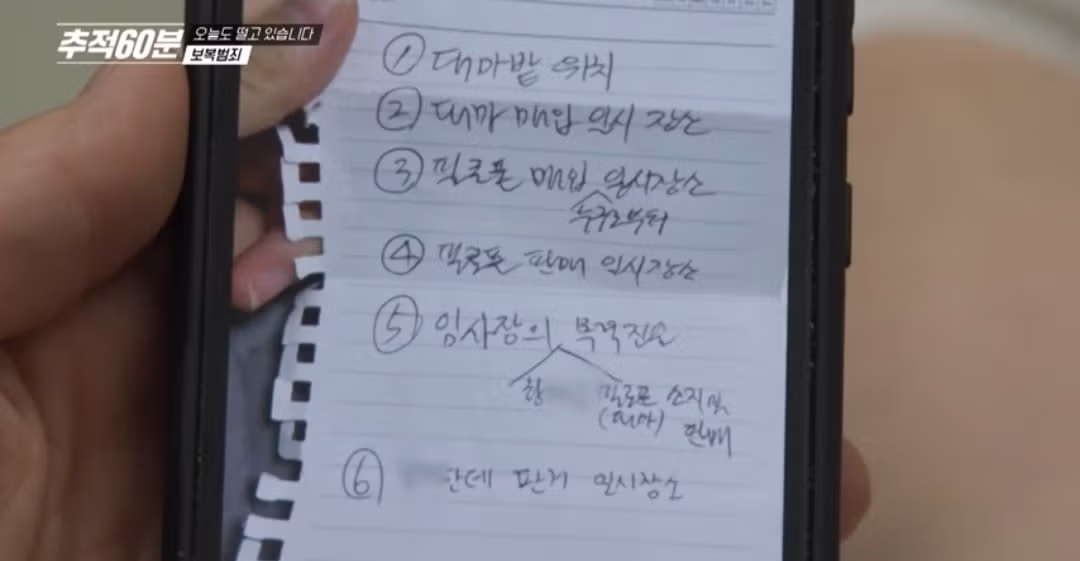 추적60분
오늘도 떨고 있습니다
보복범죄
① 대마밭 위치
② 대마 매입 일시 장소
③ 필로폰 매입 일시장소
누구로부터
④ 필로폰 판매 일시장소
⑤ 임사장의 목격진술
황 필로폰 소지 및
(대마) 판매
⑥ 한테 판거 일시장소